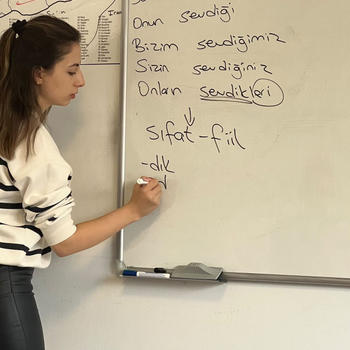 Onun sevdiği
Bizim sevdiğimiz
Sizin sevdiğiniz
Onların sevdikleri
sıfat-fiil
-dık